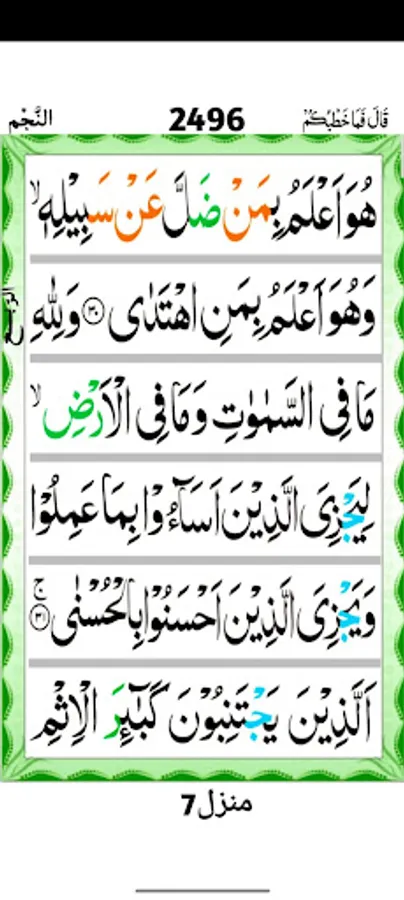 قَالَ فَمَا خَطْبُكُمْ 2496 النَّجْم
هُوَ اَعْلَمُ بِمَنْ ضَلَّ عَنْ سَبِيْلِهٖ ۙ
وَهُوَ اَعْلَمُ بِمَنِ اهْتَدٰى ۝۳۰ وَلِلّٰهِ
مَا فِى السَّمٰوٰتِ وَمَا فِى الْاَرْضِ ۙ
لِيَجْزِىَ الَّذِيْنَ اَسَآءُوْا بِمَا عَمِلُوْا
وَيَجْزِىَ الَّذِيْنَ اَحْسَنُوْا بِالْحُسْنٰى ۝۳۱ ۚ
اَلَّذِيْنَ يَجْتَنِبُوْنَ كَبٰٓئِرَ الْاِثْمِ
منزل 7